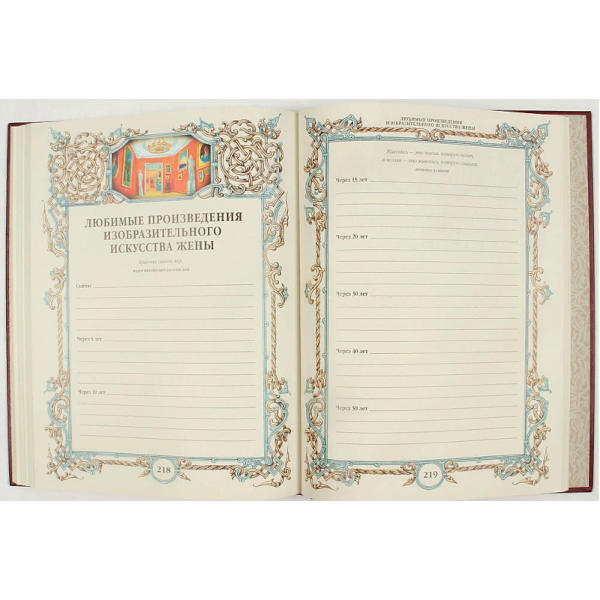 ЛЮБИМЫЕ ПРОИЗВЕДЕНИЯ
ИЗОБРАЗИТЕЛЬНОГО
ИСКУССТВА ЖЕНЫ
Красота спасет мир.
ФЕДОР МИХАЙЛОВИЧ ДОСТОЕВСКИЙ
Сейчас
Через 5 лет
Через 10 лет
218
ЛЮБИМЫЕ ПРОИЗВЕДЕНИЯ
ИЗОБРАЗИТЕЛЬНОГО ИСКУССТВА ЖЕНЫ
Живопись — это поэзия, которую видят,
а поэзия — это живопись, которую слышат.
ЛЕОНАРДО ДА ВИНЧИ
Через 15 лет
Через 20 лет
Через 30 лет
Через 40 лет
Через 50 лет
219